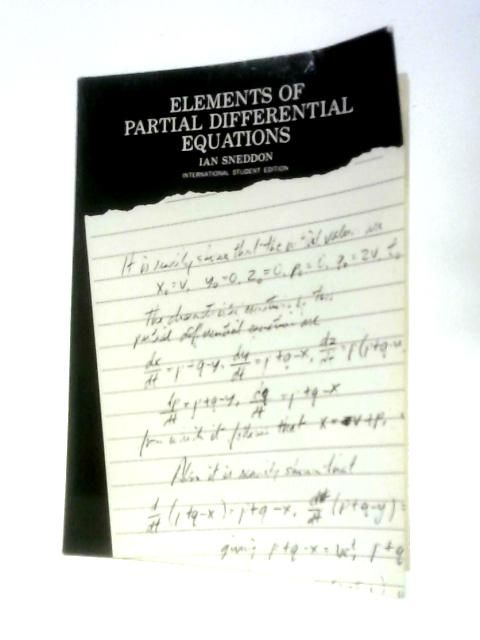 ELEMENTS OF
PARTIAL DIFFERENTIAL
EQUATIONS
IAN SNEDDON
INTERNATIONAL STUDENT EDITION
It is easily shown that the initial values are
x₀=v, y₀=0, z₀=0, p₀=0, q₀=2v, t₀
The characteristic equations of this
partial differential equation are
dx/dt = p+q-y, dy/dt = p+q-x, dz/dt = p(p+q-y
dp/dt = p+q-y, dq/dt = p+q-x
from which it follows that x = v+p,
Also it is easily shown that
d/dt (p+q-x) = p+q-x, d/dt (p+q-y) =
giving p+q-x = ve^t, p+q